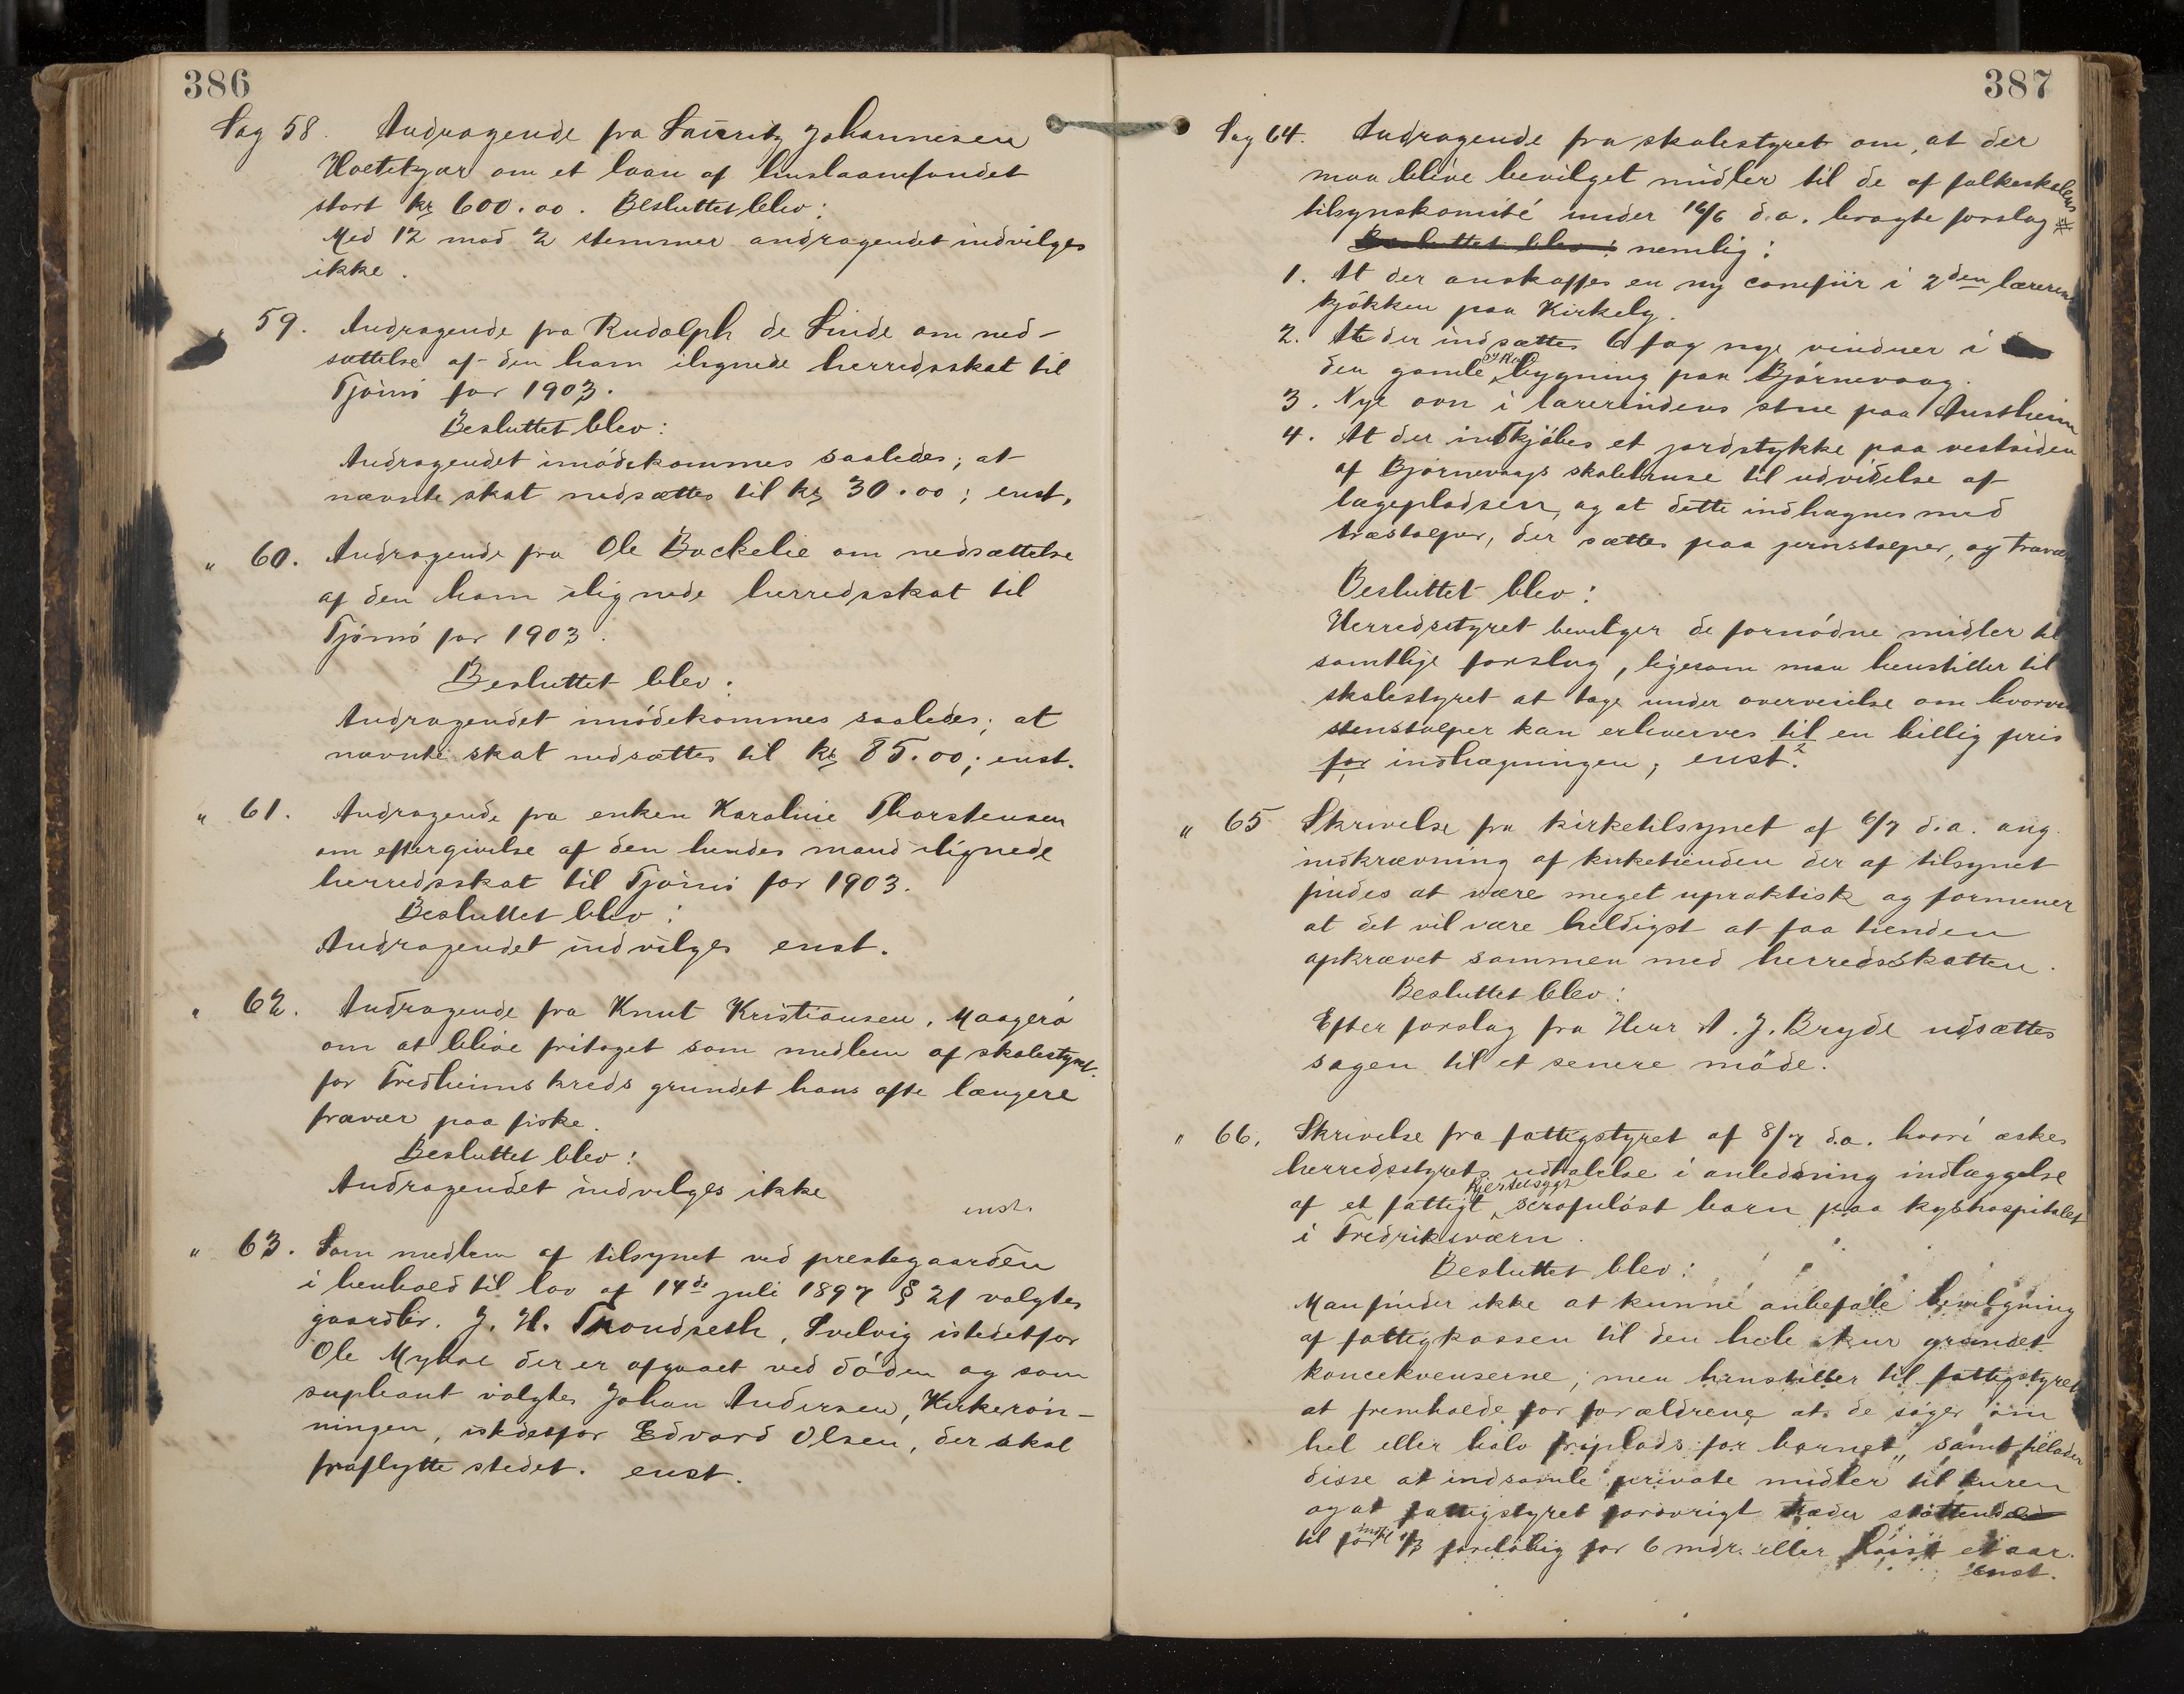 386
Sag 58. Andragende fra Lauritz Johannesen
om et laan af huslaanfondet
stort kr 600.00. Besluttet blev:
Med 12 mod 2 stemmer andragendet indvilges
ikke.
" 59. Andragende fra Rudolph de Linde om ned-
sættelse af den ham ilignede herredsskat til
Tjömö for 1903.
Besluttet blev:
Andragendet imödekommes saaledes; at
nævnte skat nedsættes til kr 30.00; enst.
" 60. Andragende fra Ole Backelie om nedsættelse
af den ham ilignede herredsskat til
Tjömö for 1903.
Besluttet blev:
Andragendet imödekommes saaledes; at
nævnte skat nedsættes til kr 85.00; enst.
" 61. Andragende fra enken Karoline Thorstensen
om eftergivelse af den hendes mand ilignede
herredsskat til Tjömö for 1903.
Besluttet blev:
Andragendet indvilges enst.
" 62. Andragende fra Knut Kristiansen, Maagerö
om at blive fritaget som medlem af skolestyret
for Fredheims kreds grundet hans ofte længere
fravær paa fiske.
Besluttet blev:
Andragendet indvilges ikke
enst.
" 63. Som medlem af tilsynet ved prestegaarden
i henhold til lov af 14de juli 1897 § 21 valgtes
gaardbr. J. H. Trondseth, Svelvig istedetfor
Ole Myhre der er afgaaet ved döden og som
supleant valgtes Johan Andersen, Kirkerön-
ningen, istedetfor Edvard Olsen, der skal
fraflytte stedet. enst.
387
Sag 64. Andragende fra skolestyret om, at der
maa blive bevilget midler til de af folkeskolens
tilsynskomité under 16/6 d.a. bragte forslag #
Besluttet blev: nemlig:
1. At der anskaffes en ny comfür i 2den lærerens
kjökken paa Kirkely.
2. At der indsættes 6 fag nye vinduer i
den gamle bygning paa Bjørnevaag.
3. Nye ovn i lærerindens stue paa Austheim
4. At der indkjöbes et jordstykke paa vestsiden
af Bjørnevaags skolehuse til udvidelse af
legepladsen, og at dette indhegnes med
træstolper, der sættes paa jernstolper, og
Besluttet blev:
Herredsstyret bevilger de fornödne midler til
samtlige forslag, ligesom man henstiller til
skolestyret at tage under overveielse om hvorvidt
stenstolper kan erhverves til en billig pris
for indhegningen; enst.
" 65 Skrivelse fra kirketilsynet af 6/7 d.a. ang.
indkrævning af kirketienden der af tilsynet
findes at være meget upraktisk og formener
at det vil være heldigst at faa tienden
opkrævet sammen med herredsskatten.
Besluttet blev:
Efter forslag fra Herr A. J. Bryde udsættes
sagen til et senere möde.
" 66. Skrivelse fra fattigstyret af 8/7 d.a. hvori æskes
herredsstyrets udtalelse i anledning indlæggelse
af et fattigt, kjertelsygt scrofulöst barn paa kysthospitalet
i Fredriksværn.
Besluttet blev:
Man finder ikke at kunne anbefale bevilgning
af fattigkassen til den hele kur grundet
koncekvenserne; men henstiller til fattigstyret
at fremholde for forældrene at de söger om
hel eller halv friplads for barnet, samt tillader
disse at indsamle private midler til kuren
og at fattigstyret forövrigt træder stöttende
til for indtil 1/3 forelöbig for 6 mdr. eller höist et aar.
enst.